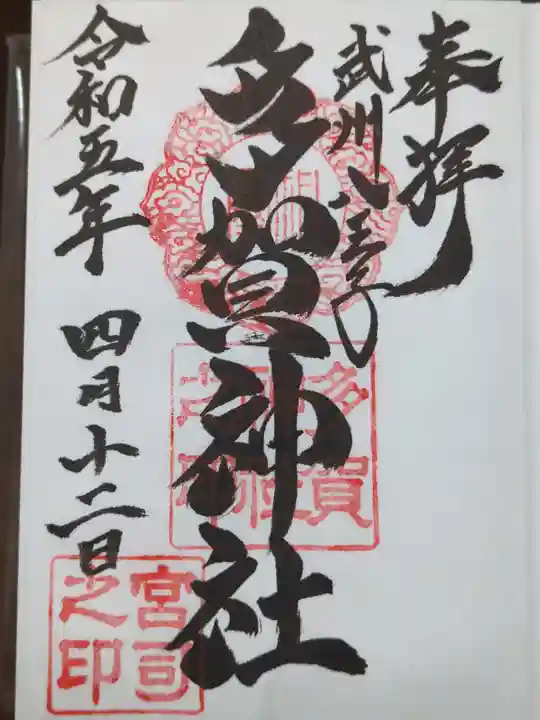 奉拝
武州八王子
多賀神社
令和五年
四月十二日
多賀
神社
之印
宮司
之印